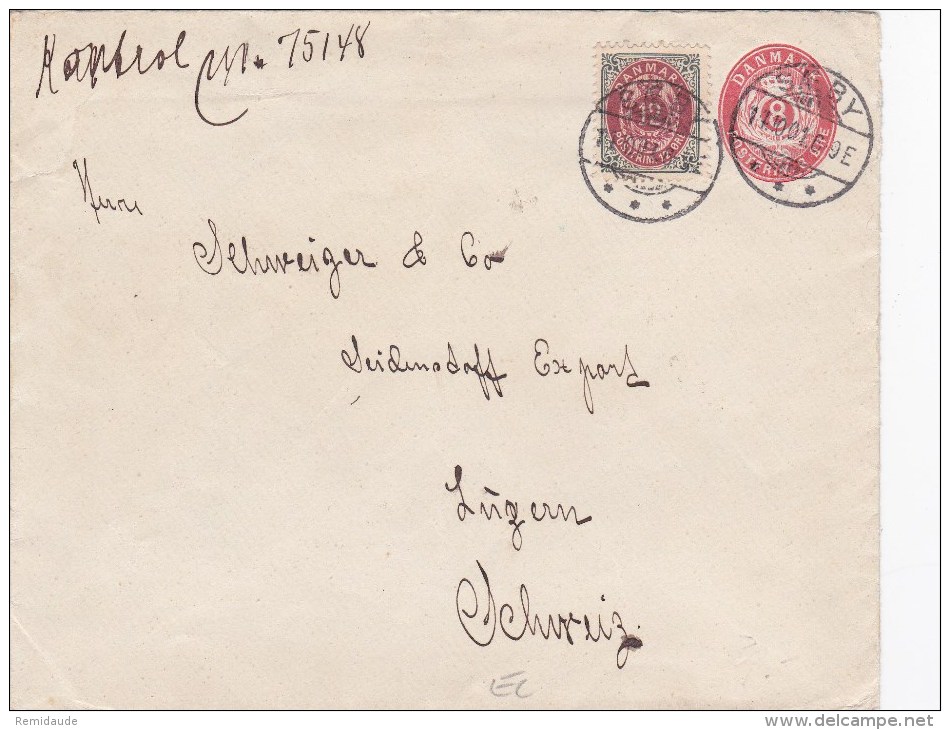 Kontrol No 75148
DANMARK
12
POSTFRIM. 12 ØRE
DANMARK
8
11.10.01. 6-9E
Herre
Schweizer & Co
Seidenstoff Export
Luzern
Schweiz.
EC
Remidaude
www.delcampe.net